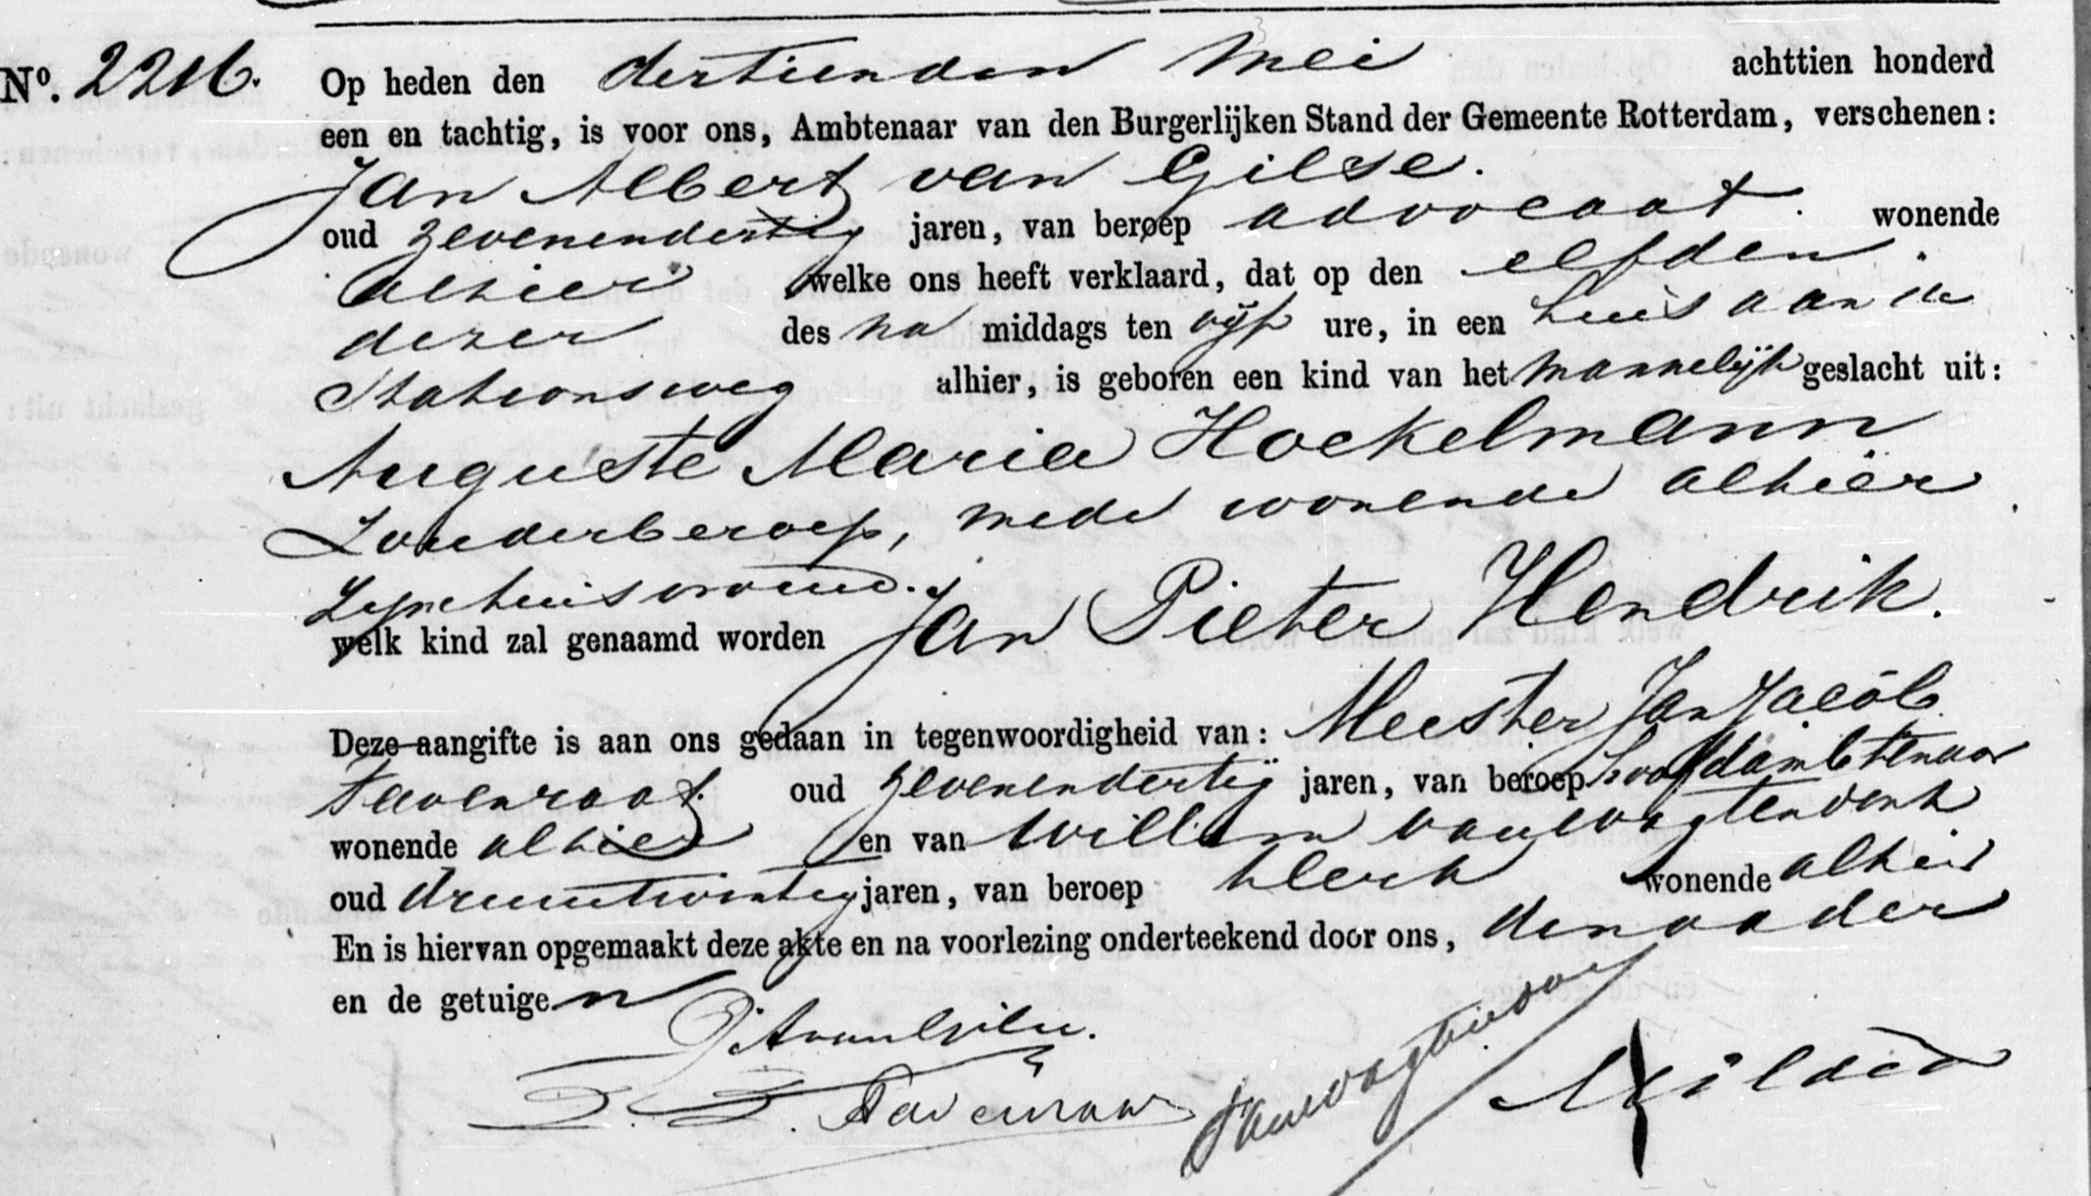 No. 2216. Op heden den dertienden Mei achttien honderd
een en tachtig, is voor ons, Ambtenaar van den Burgerlijken Stand der Gemeente Rotterdam, verschenen:
Jan Albert van Gilse.
oud zevenendertig jaren, van beroep advocaat. wonende
alhier welke ons heeft verklaard, dat op den elfden
dezer des na middags ten vijf ure, in een huis aan de
Stationsweg alhier, is geboren een kind van het mannelijk geslacht uit:
Auguste Maria Hoekelmann
Zonder beroep, mede wonende alhier
Zijne huisvrouw.
welk kind zal genaamd worden Jan Pieter Hendrik.
Deze aangifte is aan ons gedaan in tegenwoordigheid van: Meester Jan Jacob
Tavenraat oud zevenendertig jaren, van beroep hoofdambtenaar
wonende alhier en van Willem van Wagtendonk
oud drieentwintig jaren, van beroep klerk wonende alhier
En is hiervan opgemaakt deze akte en na voorlezing onderteekend door ons, den vader
en de getuigen
JAvanGilse.
J. J. Tavenraat